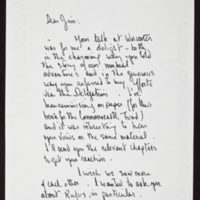 Dear Jim,
Your talk at Worcester
was for me a delight - both
in the charming way you told
the story of our mutual
adventures and in the generous
way you referred to my efforts
via the Delegation. I've
been reminiscing on paper (for
book for the Commonwealth Fund)
and it was interesting to hear
your views on the same material.
I'll send you the relevant chapters
to get your reaction.
I wish we saw more
of each other. I wanted to ask you
about Rufus in particular.